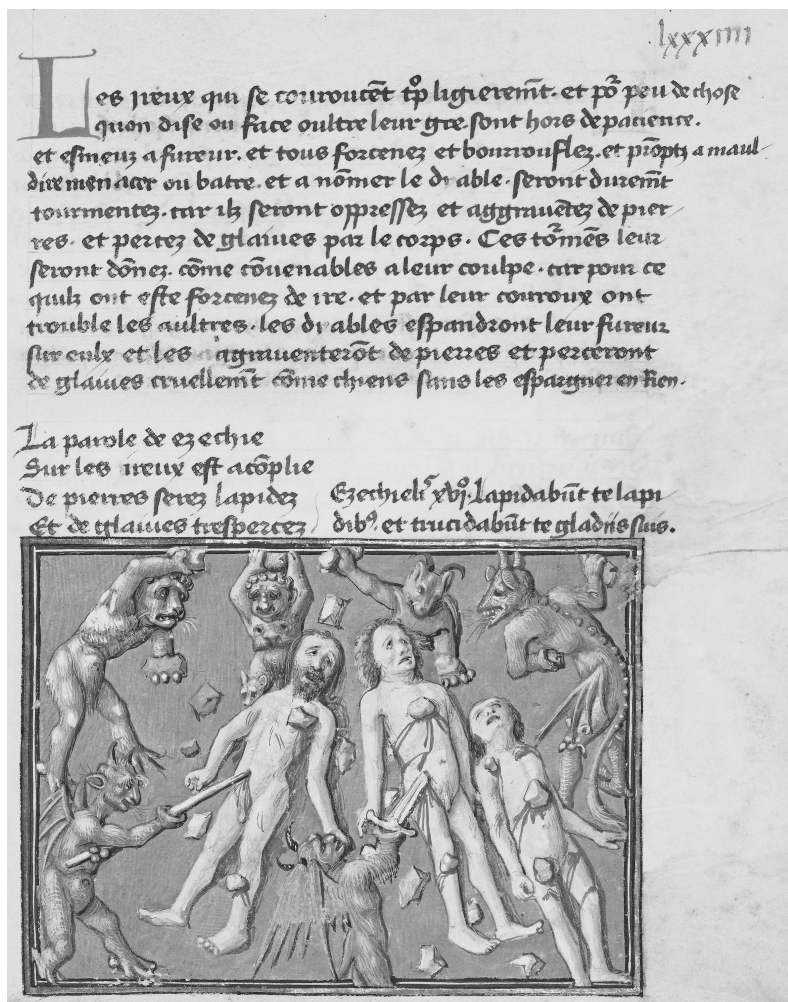 lxxxiiii
Les ireux qui se couroucēt tp̄ ligieremt̄. et po᷑ peu de chose
quon dise ou face oultre leur gre. sont hors de pacience.
et esmeuz a fureur. et tous forcenez et bourrouflez. et prōptz a maul-
dire menacer ou batre. et a nōmer le dyable. seront duremt̄
tourmentez. car ilz seront oppressez et aggravētez de pier
res. et percez de glaives par le corps. Ces tōrmēs leur
seront dōnez. cōme cōuenables a leur coulpe. car pour ce
quilz ont este forcenez de ire. et par leur couroux ont
trouble les aultres. les dyables espandront leur fureur
sur eulx et les aggraventerōt de pierres et perceront
de glaives cruellemt̄ cōme chiens sans les espargner en Rien.
La parole de ezechie
Sur les ireux est acōplie
De pierres serez lapidez
Et de glaives trespercez
Ezechielis xvi°. Lapidabūt te lapi
dib9. et trucidabūt te gladiis suis.